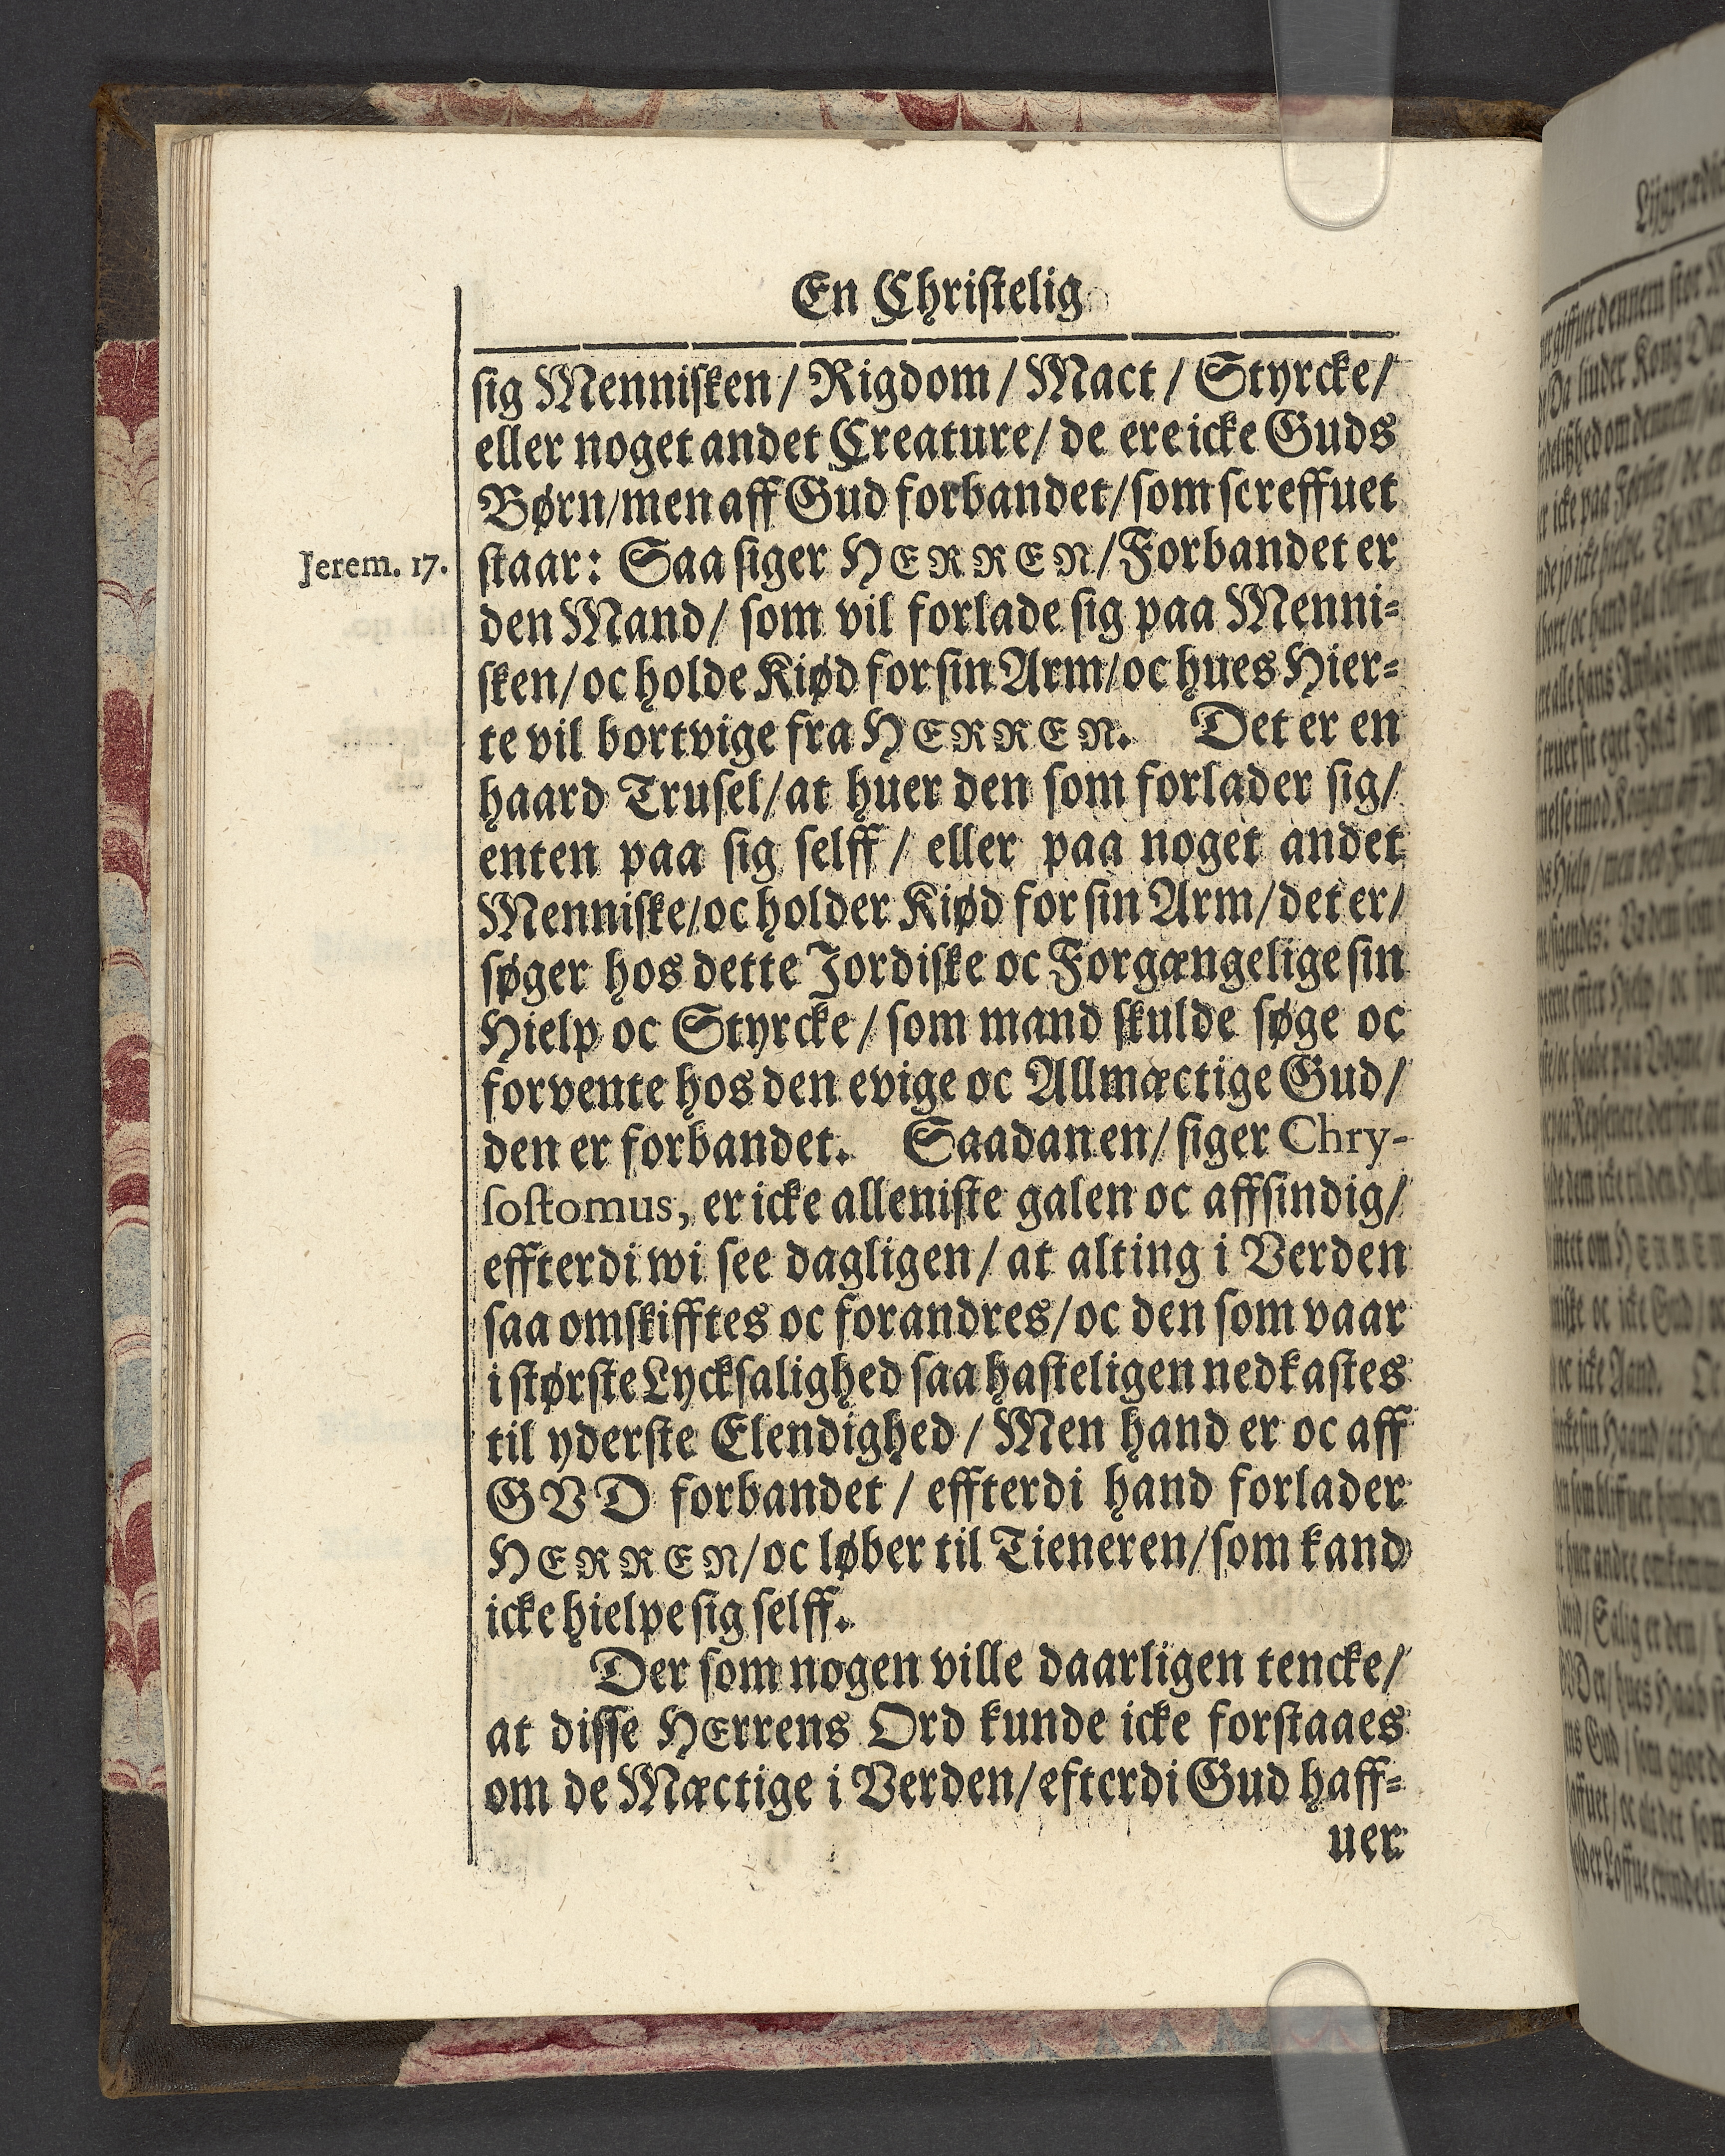 En Christelig
sig Mennisken / Rigdom / Mact / Styrcke /
eller noget andet Creature / de ere icke Guds
Børn / men aff Gud forbandet / som screffuet
Jerem. 17.
staar: Saa siger HERREN / Forbandet er
den Mand / som vil forlade sig paa Menni-
sken / oc holde Kiød for sin Arm / oc hues Hier-
te vil bortvige fra HERREN. Det er en
haard Trusel / at huer den som forlader sig /
enten paa sig selff / eller paa noget andet
Menniske / oc holder Kiød for sin Arm / det er /
søger hos dette Jordiske oc Forgængelige sin
Hielp oc Styrcke / som mand skulde søge oc
forvente hos den evige oc Allmæctige Gud /
den er forbandet. Saadan en / siger Chry-
sostomus, er icke alleniste galen oc affsindig /
effterdi wi see dagligen / at alting i Verden
saa omskifftes oc forandres / oc den som vaar
i største Lycksalighed saa hasteligen nedkastes
til yderste Elendighed / Men hand er oc aff
GVD forbandet / effterdi hand forlader
HERREN / oc løber til Tieneren / som kand
icke hielpe sig selff.
Der som nogen ville daarligen tencke /
at disse HErrens Ord kunde icke forstaaes
om de Mæctige i Verden / efterdi Gud haff-
uer